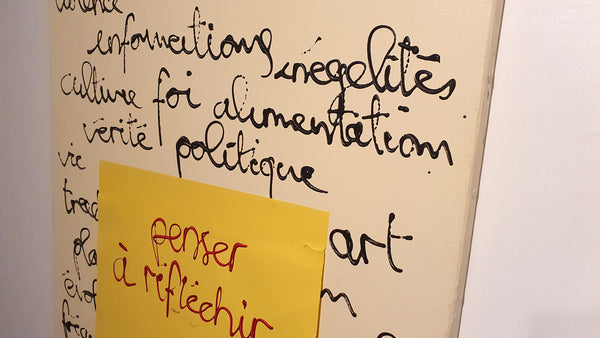 informations inégalités
culture foi alimentation
vérité politique
vie
art
penser
à réfléchir